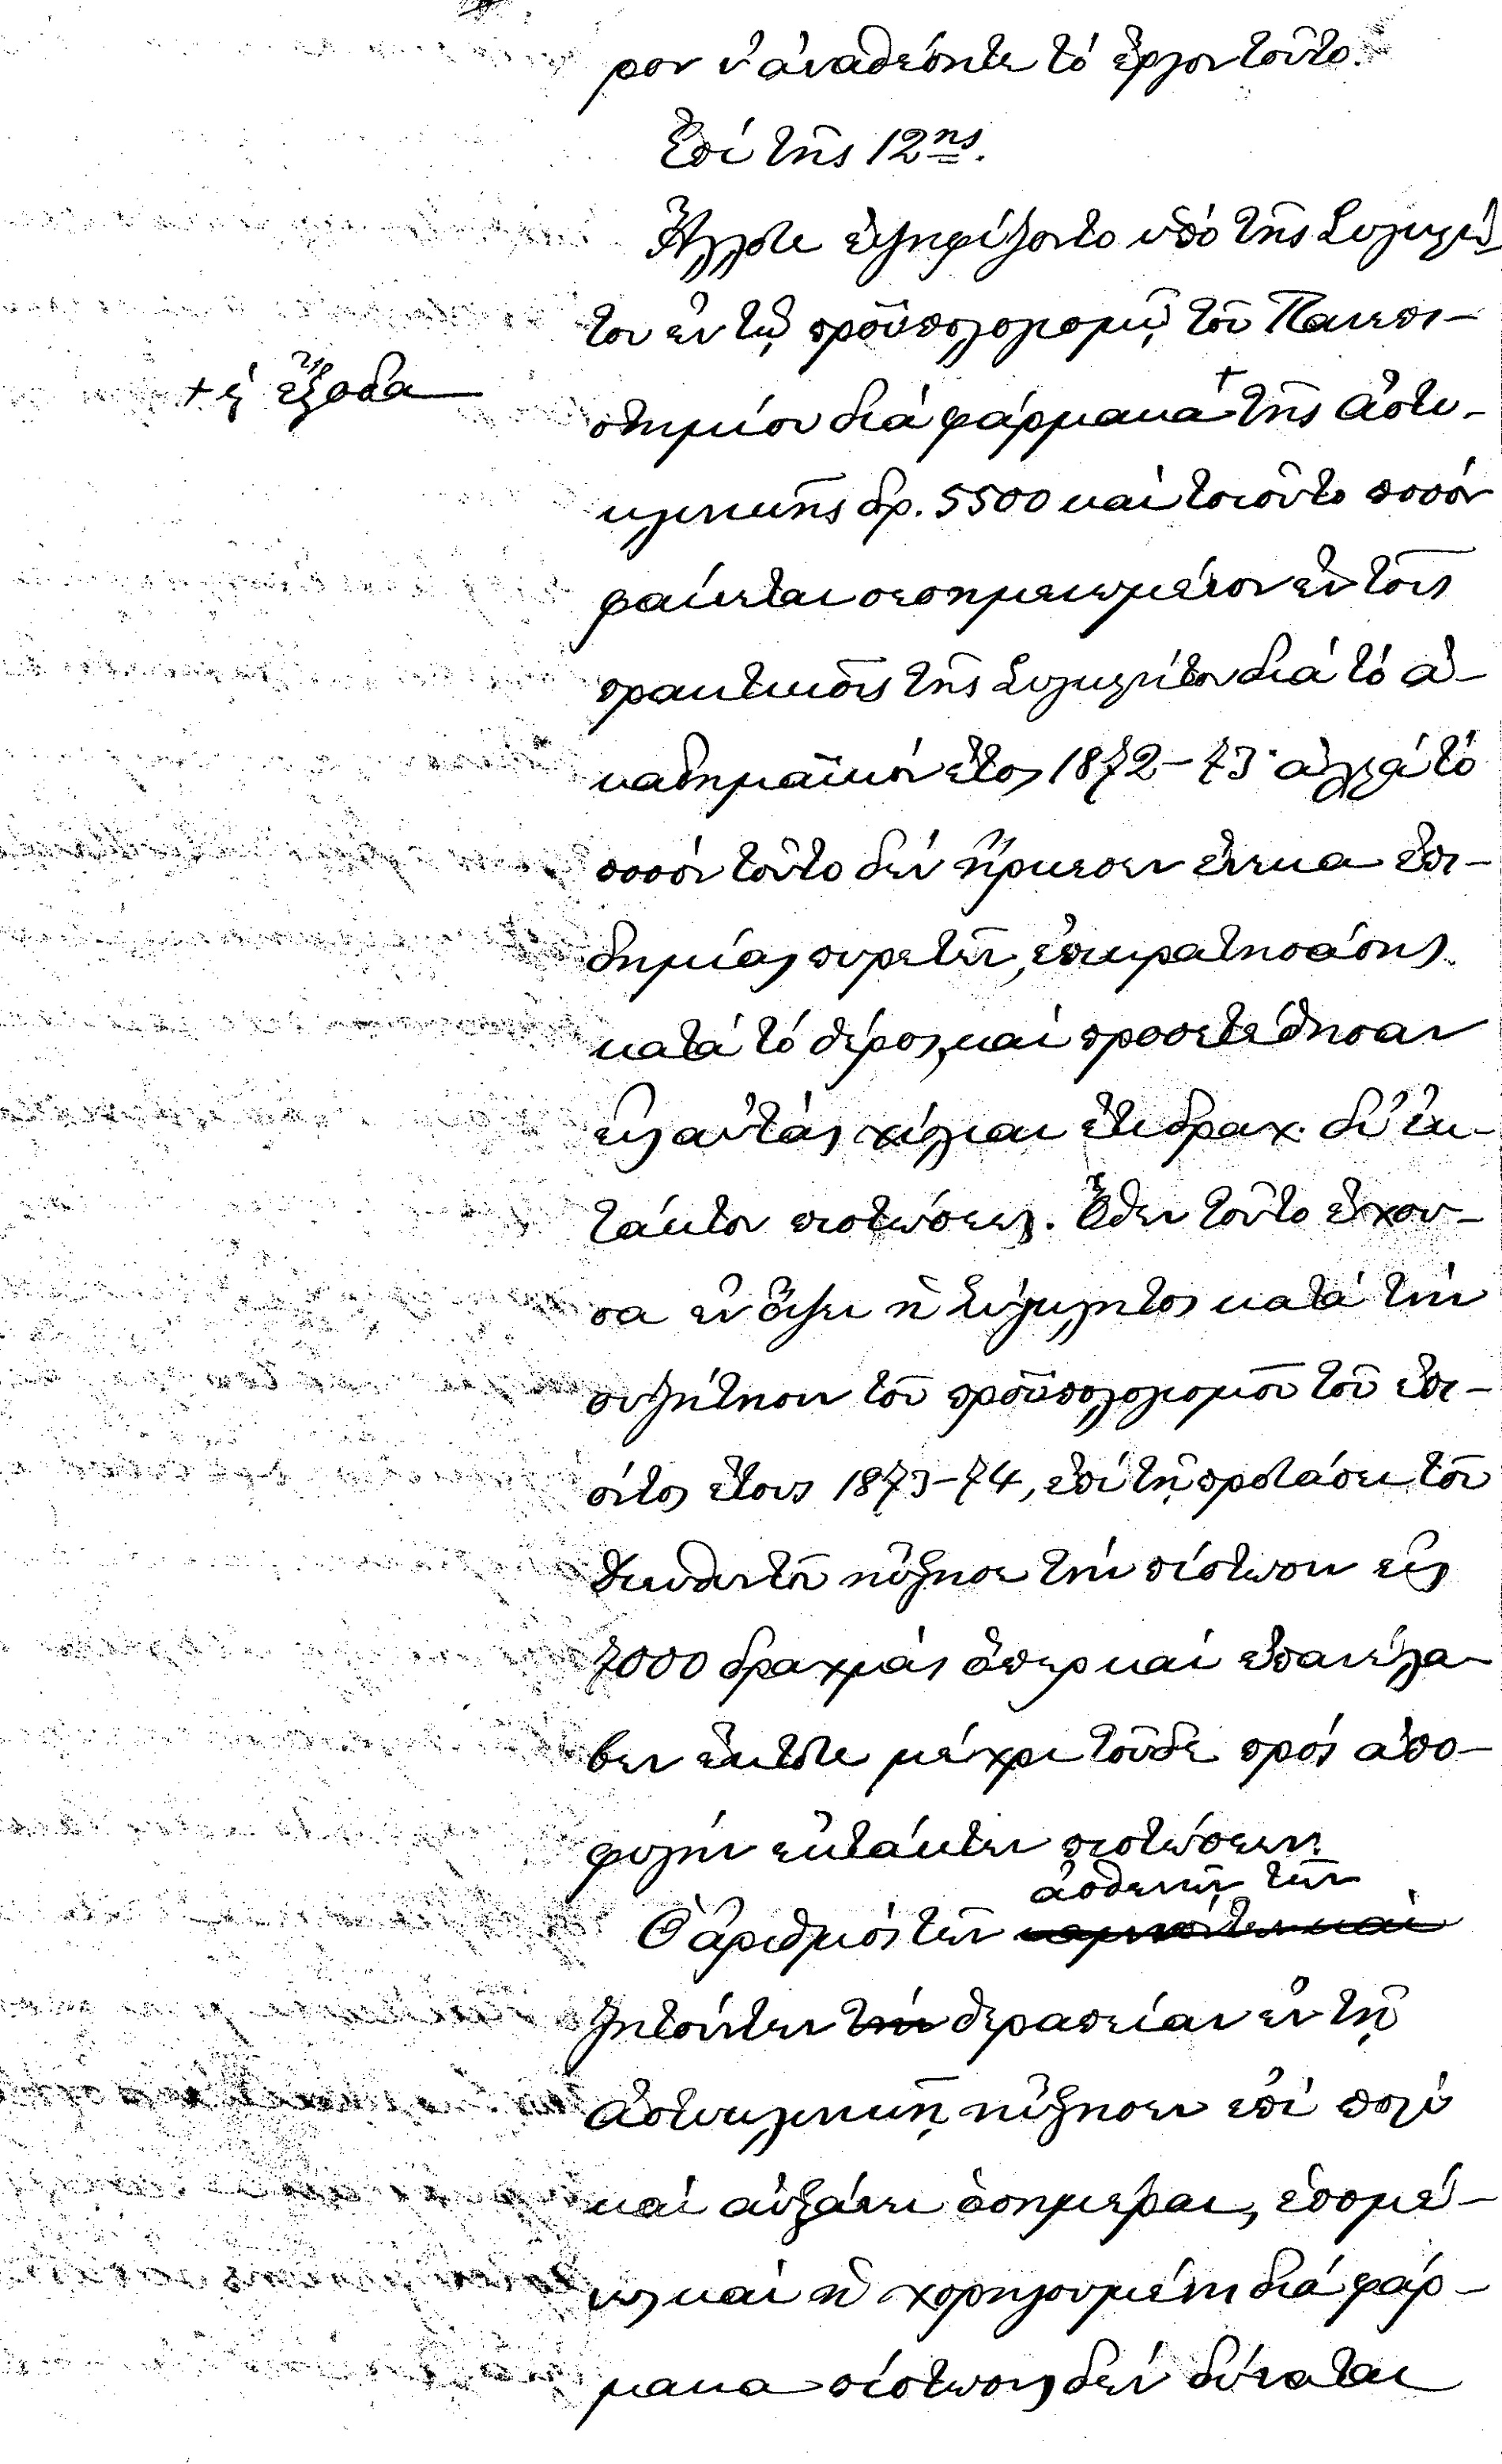 ρον ν' ἀναθέσητε τὸ ἔργον τοῦτο.
Ἐπὶ τῆς 12ης.
Ἄλλοτε ἐψηφίζοντο ὑπὸ τῆς Συγκλή
του ἐν τῷ προϋπολογισμῷ τοῦ Πανεπι-
+ ἢ ἔξοδα
στημίου διὰ φάρμακα + τῆς ἀστυ-
κλινικῆς δρ. 5500 καὶ τοιοῦτο ποσὸν
φαίνεται σεσημειωμένον ἐν τοῖς
πρακτικοῖς τῆς Συγκλήτου διὰ τὸ ἀ-
καδημαϊκὸν ἔτος 1872-73· ἀλλὰ τὸ
ποσὸν τοῦτο δὲν ἤρκεσεν ἕνεκα ἐπι-
δημίας πυρετῶν, ἐπικρατησάσης
κατὰ τὸ θέρος, καὶ προσετέθησαν
εἰς αὐτὰς χίλιαι ἔτι δραχ. δι' ἐκ-
τάκτου πιστώσεως. Ὅθεν τοῦτο ἔχου-
σα ἐν ὄψει ἡ Σύγκλητος κατὰ τὴν
συζήτησιν τοῦ προϋπολογισμοῦ τοῦ ἐπι-
όντος ἔτους 1873-74, ἐπὶ τῇ προτάσει τοῦ
διευθυντοῦ ηὔξησε τὴν πίστωσιν εἰς
7000 δραχμὰς ὅπερ καὶ ἐπανέλα-
βεν ἔκτοτε μέχρι τοῦδε πρὸς ἀπο-
φυγὴν ἐκτάκτων πιστώσεων.
ἀσθενῶν τῶν
Ὁ ἀριθμὸς τῶν
ζητούντων τὴν θεραπείαν ἐν τῇ
ἀστυκλινικῇ ηὔξησεν ἐπὶ πολὺ
καὶ αὐξάνει ὁσημέραι, ἑπομέ-
νως καὶ ἡ χορηγουμένη διὰ φάρ-
μακα πίστωσις δὲν δύναται